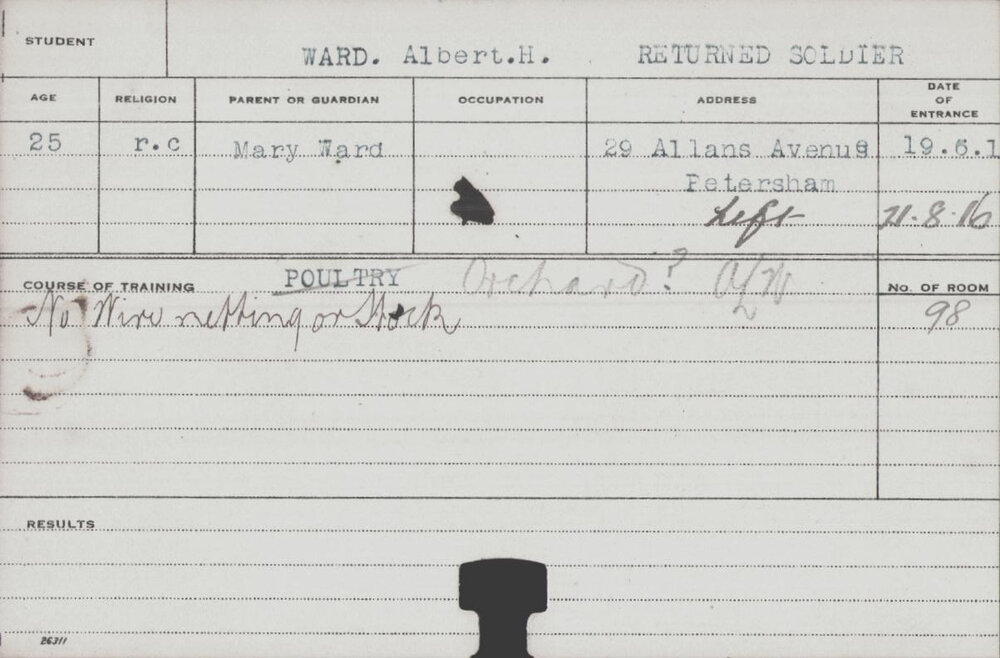 STUDENT WARD. Albert.H. RETURNED SOLDIER
AGE RELIGION PARENT OR GUARDIAN OCCUPATION ADDRESS DATE OF ENTRANCE
25 r.c Mary Ward 29 Allans Avenue 19.6.1
Petersham
Left 21.8.16
COURSE OF TRAINING POULTRY Orchard? No. OF ROOM
No Wire netting or Stock 98
RESULTS
26311